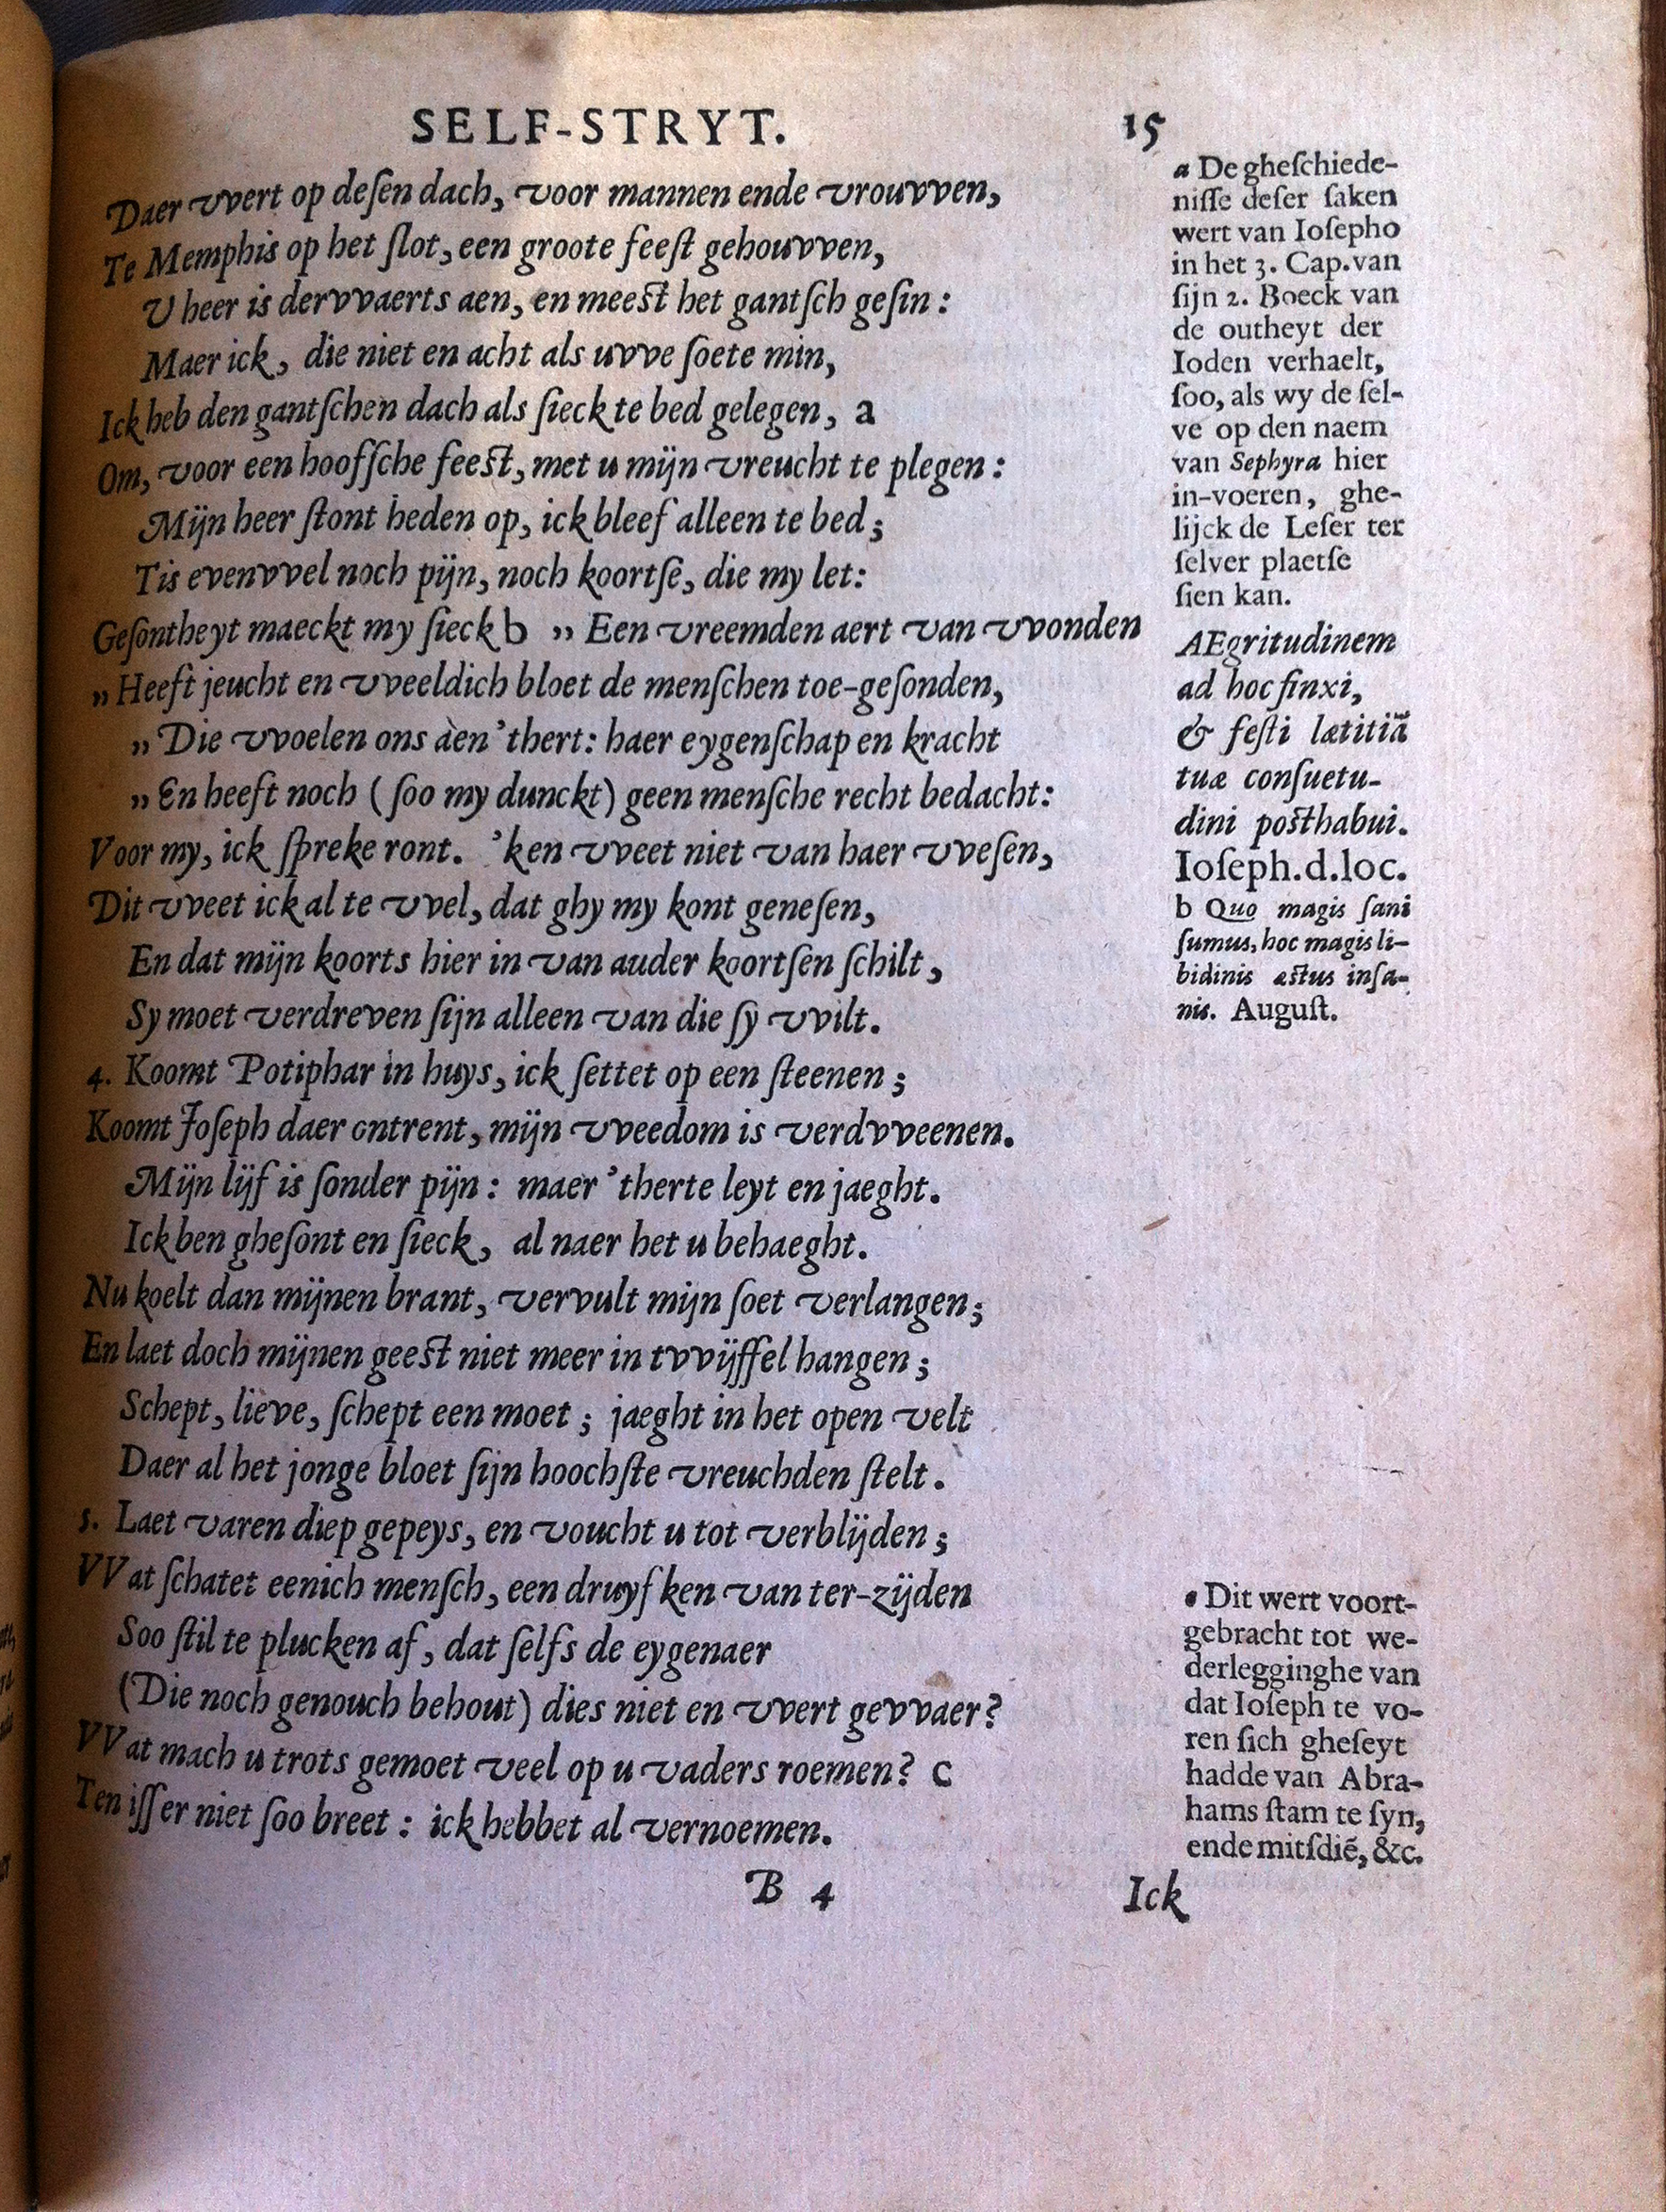 SELF-STRYT. 15
Daer vvert op deſen dach, voor mannen ende vrouvven,
Te Memphis op het ſlot, een groote feeſt gehouvven,
U heer is dervvaerts aen, en meeſt het gantſch geſin:
Maer ick, die niet en acht als uvve ſoete min,
Ick heb den gantſchen dach als ſieck te bed gelegen, a
Om, voor een hoofſche feeſt, met u mijn vreucht te plegen:
Mijn heer ſtont heden op, ick bleef alleen te bed;
Tis evenvvel noch pijn, noch koortſe, die my let:
Geſontheyt maeckt my ſieck b „ Een vreemden aert van vvonden
„ Heeft jeucht en vveeldich bloet de menſchen toe-geſonden,
„ Die vvoelen ons aen 'thert: haer eygenſchap en kracht
„ En heeft noch (ſoo my dunckt) geen menſche recht bedacht:
Voor my, ick ſpreke ront. 'ken vveet niet van haer vveſen,
Dit vveet ick al te vvel, dat ghy my kont geneſen,
En dat mijn koorts hier in van auder koortſen ſchilt,
Sy moet verdreven ſijn alleen van die ſy vvilt.
4. Koomt Potiphar in huys, ick ſettet op een ſteenen;
Koomt Joſeph daer ontrent, mijn vveedom is verdvveenen.
Mijn lijf is ſonder pijn: maer 'therte leyt en jaeght.
Ick ben gheſont en ſieck, al naer het u behaeght.
Nu koelt dan mijnen brant, vervult mijn ſoet verlangen;
En laet doch mijnen geeſt niet meer in tvvijffel hangen;
Schept, lieve, ſchept een moet; jaeght in het open velt
Daer al het jonge bloet ſijn hoochſte vreuchden ſtelt.
5. Laet varen diep gepeys, en voucht u tot verblijden;
VVat ſchatet eenich menſch, een druyfken van ter-zijden
Soo ſtil te plucken af, dat ſelfs de eygenaer
(Die noch genouch behout) dies niet en vvert gevvaer?
VVat mach u trots gemoet veel op u vaders roemen? c
Ten iſſer niet ſoo breet: ick hebbet al vernoemen.
B 4
Ick
a De gheſchiede-
niſſe deſer ſaken
wert van Ioſepho
in het 3. Cap. van
ſijn 2. Boeck van
de outheyt der
Ioden verhaelt,
ſoo, als wy de ſel-
ve op den naem
van Sephyra hier
in-voeren, ghe-
lijck de Leſer ter
ſelver plaetſe
ſien kan.
AEgritudinem
ad hoc finxi,
& feſti lætitiã
tuæ conſuetu-
dini poſthabui.
Ioſeph. d. loc.
b Quo magis ſani
ſumus, hoc magis li-
bidinis æſtus inſa-
nis. Auguſt.
c Dit wert voort-
gebracht tot we-
derlegginghe van
dat Ioſeph te vo-
ren ſich gheſeyt
hadde van Abra-
hams ſtam te ſyn,
ende mitſdiẽ, &c.